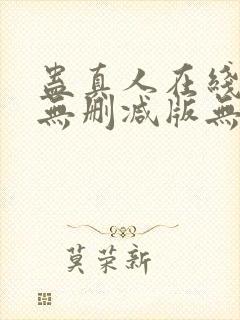 蛊真人在綫
無删减版無
莫荣新